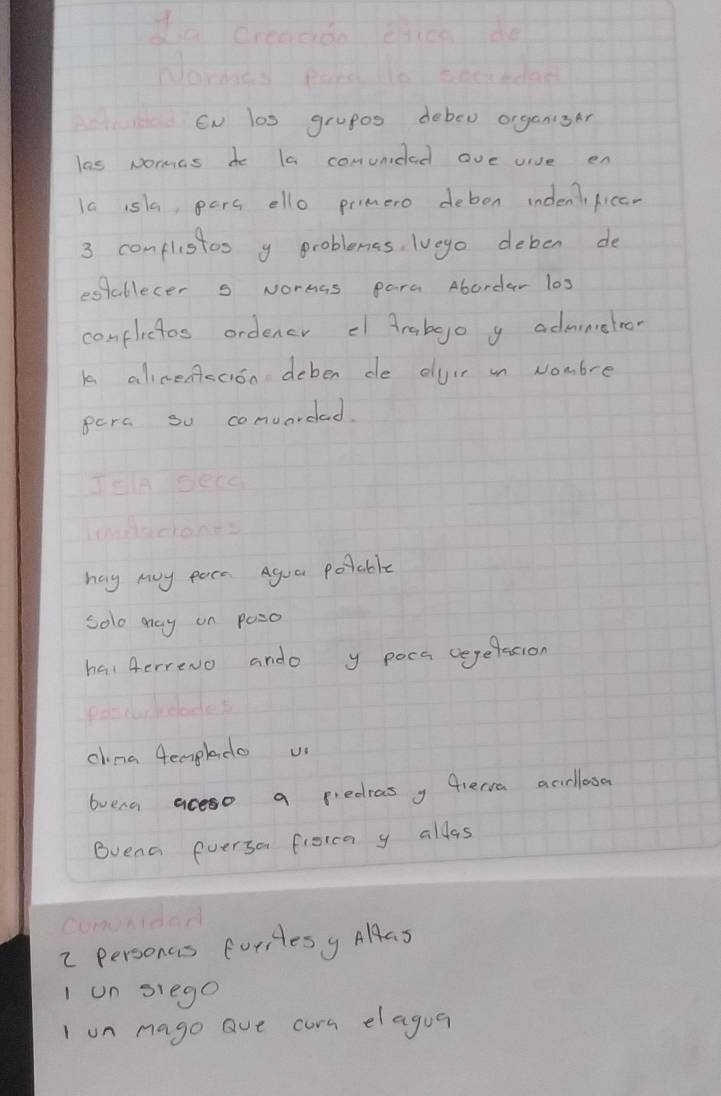 La creación ética de
Normas para la sociedad
Actividad EN los grupos deben organizar
las normas de la comunidad que vive en
la isla, para ello primero deben indentificar
3 conflistos y problemas. luego deben de
establecer 5 normas para Abordar los
conflictos ordenar el trabajo y administrar
la alimentación deben de elejir un nombre
para su comunidad.
ISlA seca
limitaciones
hay muy poca Agua potable
solo may un poso
hai terreno arido y poca vegetacion
clima templado
buena aceso a piedras y tierra arcillosa
Buena fuersa fisica y altas
comunidad
2 personas fuertes y Altas
1 un siego
1 un mago Que cura el agua